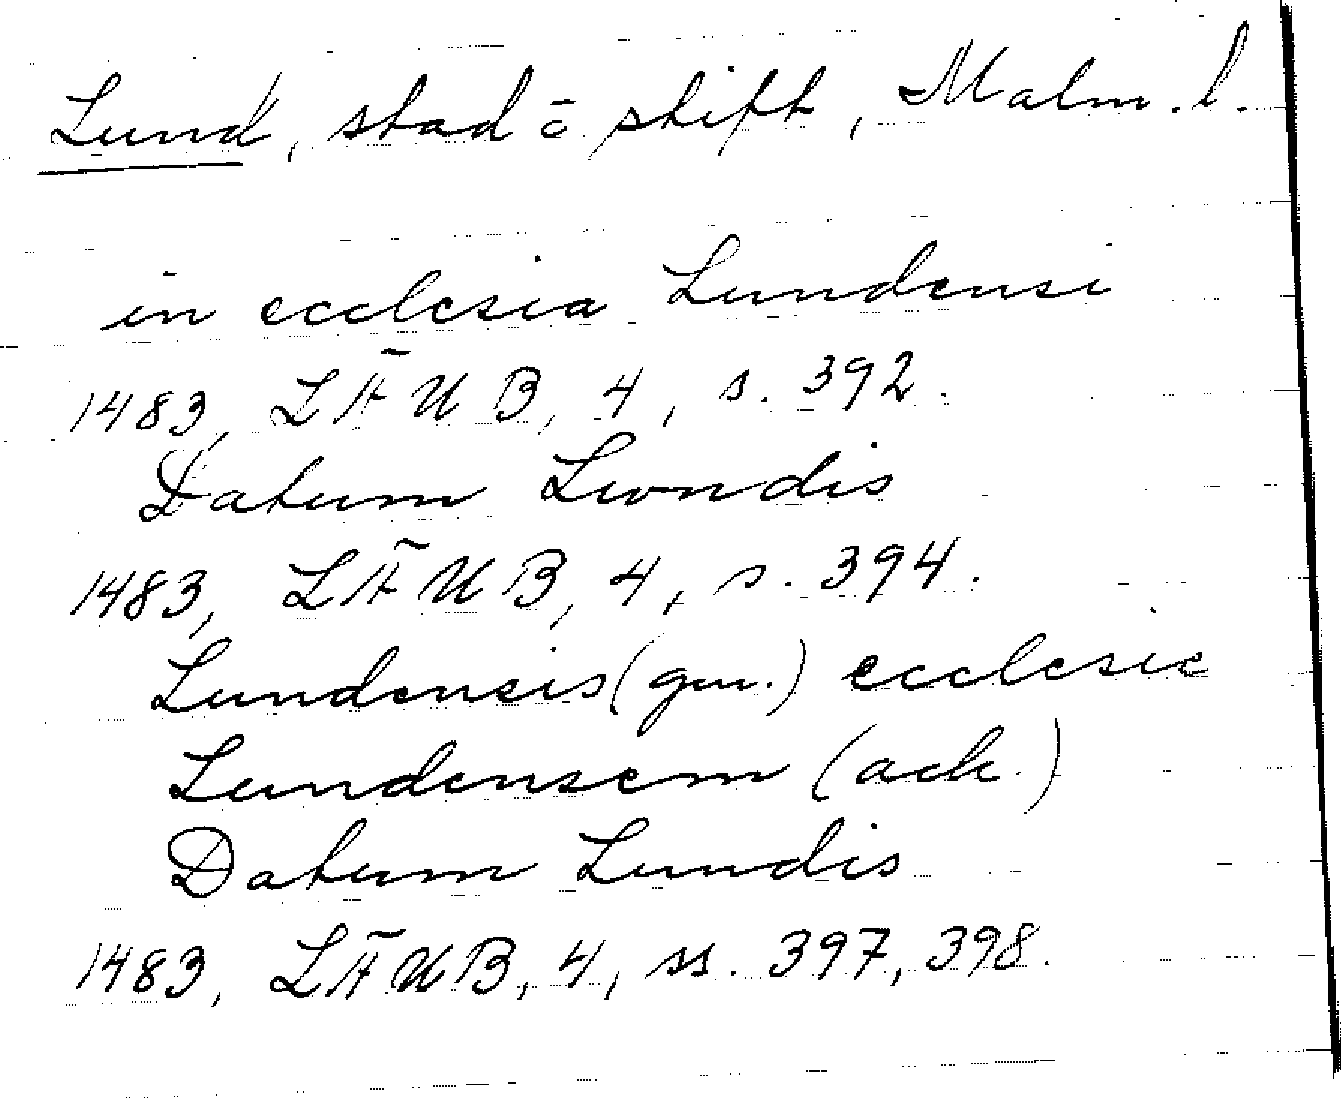 Lund, stad o. stift, Malm. l.
in ecclesia Lundensi
1483, LÄUB, 4, s. 392.
Datum Lwndis
1483, LÄUB, 4, s. 394.
Lundensis (gen.) ecclesie
Lundensem (ack.)
Datum Lundis
1483, LÄUB, 4, ss. 397, 398.